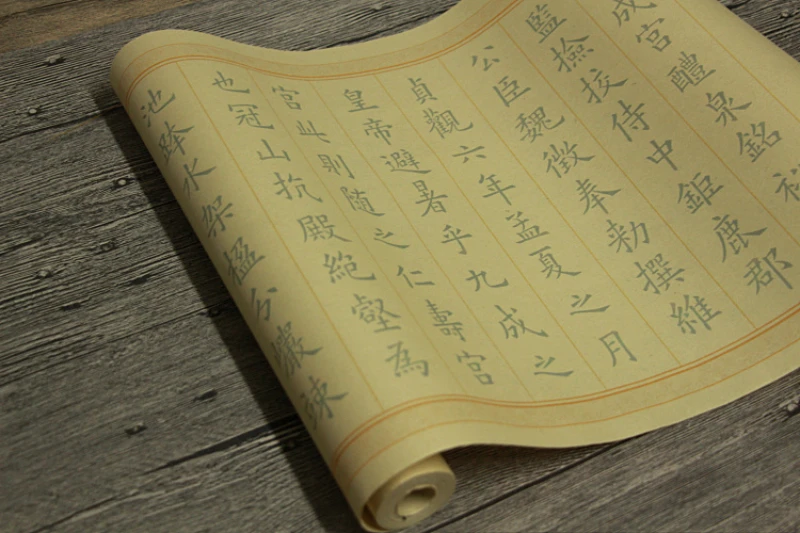 成宮醴泉銘
監撿挍侍中鉅鹿郡
公臣魏徵奉勑撰維
貞觀六年孟夏之月
皇帝避暑乎九成之
宮此則隨之仁壽宮
也冠山抗殿絕壑為
池跨水架楹分巖竦